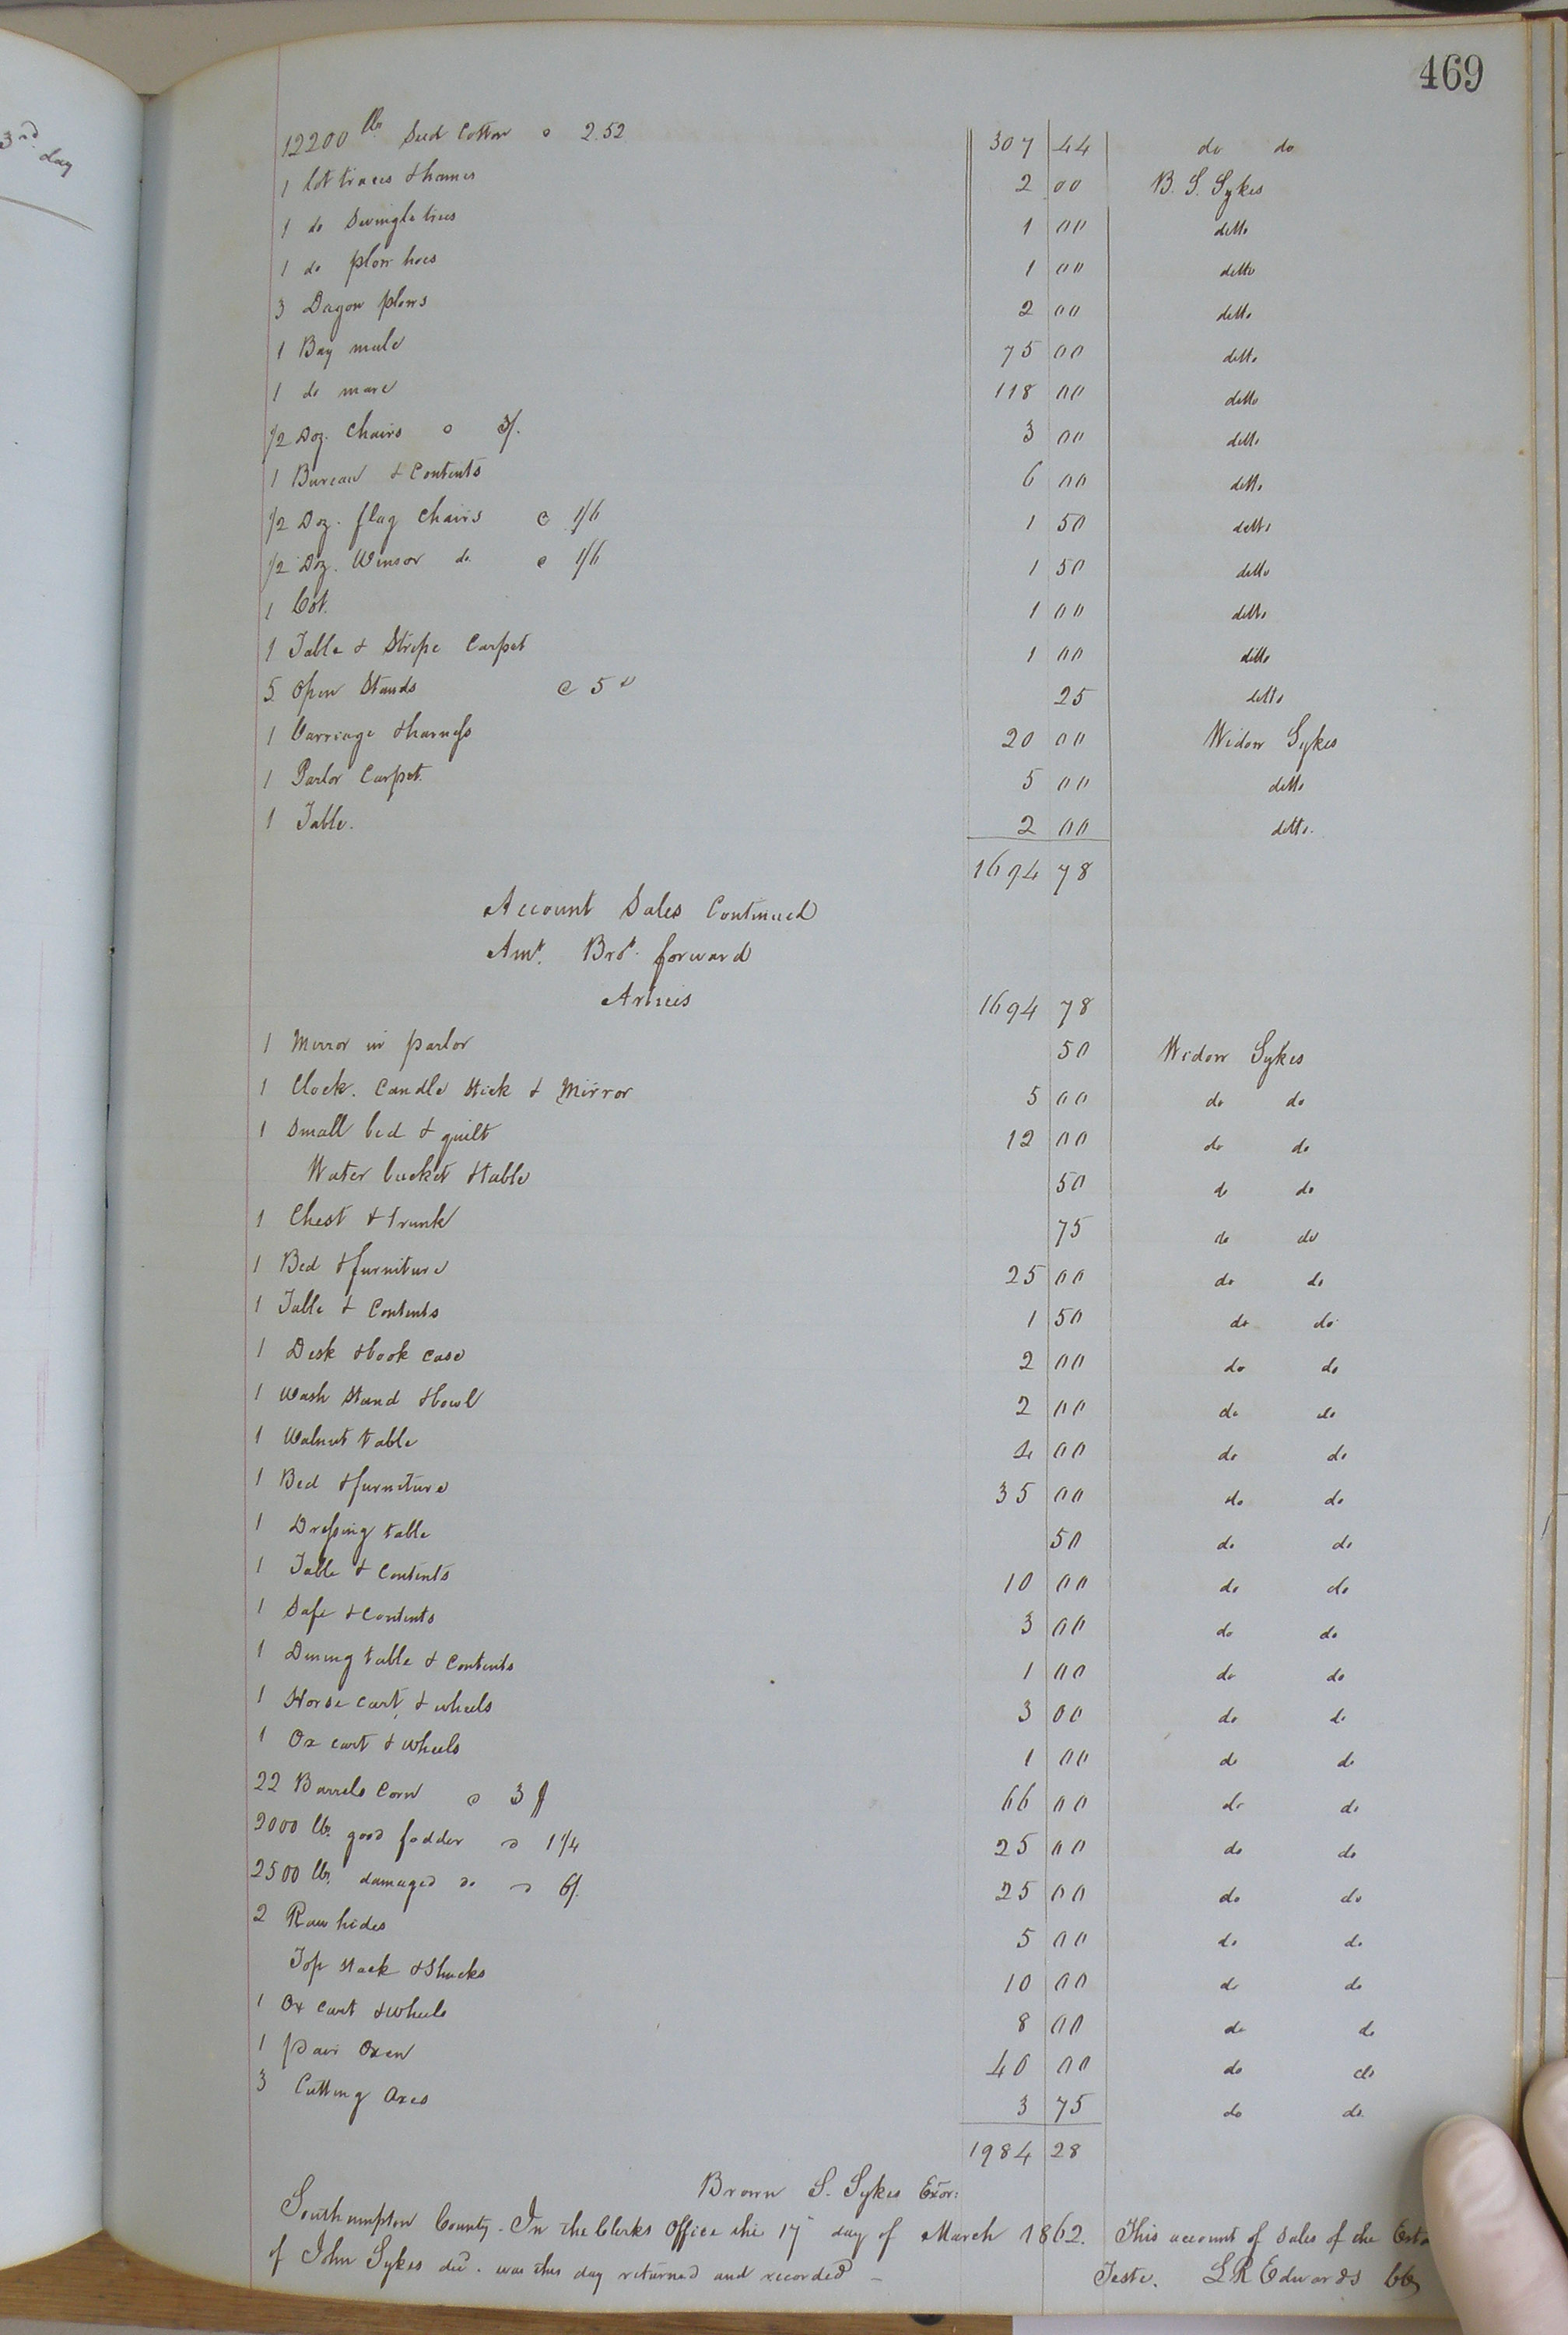 3rd day
469
12200 lbs Seed Cotton @ 2.52 307 44 do do
1 lot traces & hames 2 00 B. S. Sykes
1 do Swingle trees 1 00 ditto
1 do plow hoes 1 00 ditto
3 Dagon plows 2 00 ditto
1 Bay mule 75 00 ditto
1 do mare 118 00 ditto
1/2 Doz. Chairs @ 3/. 3 00 ditto
1 Bureau & Contents 6 00 ditto
1/2 Doz. flag Chairs @ 1/6 1 50 ditto
1/2 Doz. Winsor do. @ 1/6 1 50 ditto
1 Cot. 1 00 ditto
1 Table & Stripe Carpet 1 00 ditto
5 Open Stands @ 5 25 ditto
1 Carriage & harness 20 00 Widow Sykes
1 Parlor Carpet. 5 00 ditto
1 Table. 2 00 ditto.
1694 78
Account Sales Continued
Amt. Brot. forward
Articles 1694 78
1 Mirror in parlor 50 Widow Sykes
1 Clock. Candle Stick & Mirror 5 00 do do
1 Small bed & quilt 12 00 do do
Water bucket & table 50 do do
1 Chest & trunk 75 do do
1 Bed & furniture 25 00 do do
1 Table & Contents 1 50 do do
1 Desk & book case 2 00 do do
1 Wash Stand & bowl 2 00 do do
1 Walnut table 4 00 do do
1 Bed & furniture 35 00 do do
1 Dressing table 50 do do
1 Table & Contents 10 00 do do
1 Safe & Contents 3 00 do do
1 Dining table & Contents 1 00 do do
1 Horse cart, & wheels 3 00 do do
1 Ox cart & wheels 1 00 do do
22 Barrels Corn @ 3 $ 66 00 do do
2000 lbs. good fodder @ 1 1/4 25 00 do do
2500 lbs. damaged do @ 6/. 25 00 do do
2 Raw hides 5 00 do do
Top stack & Shucks 10 00 do do
1 Ox Cart & wheels 8 00 do do
1 pair Oxen 40 00 do do
3 Cutting Axes 3 75 do do
1984 28
Brown S. Sykes Exor:
Southampton County. In the Clerks Office the 17 day of March 1862. This account of Sales of the Esta
of John Sykes decd. was this day returned and recorded – Teste. L R Edwards